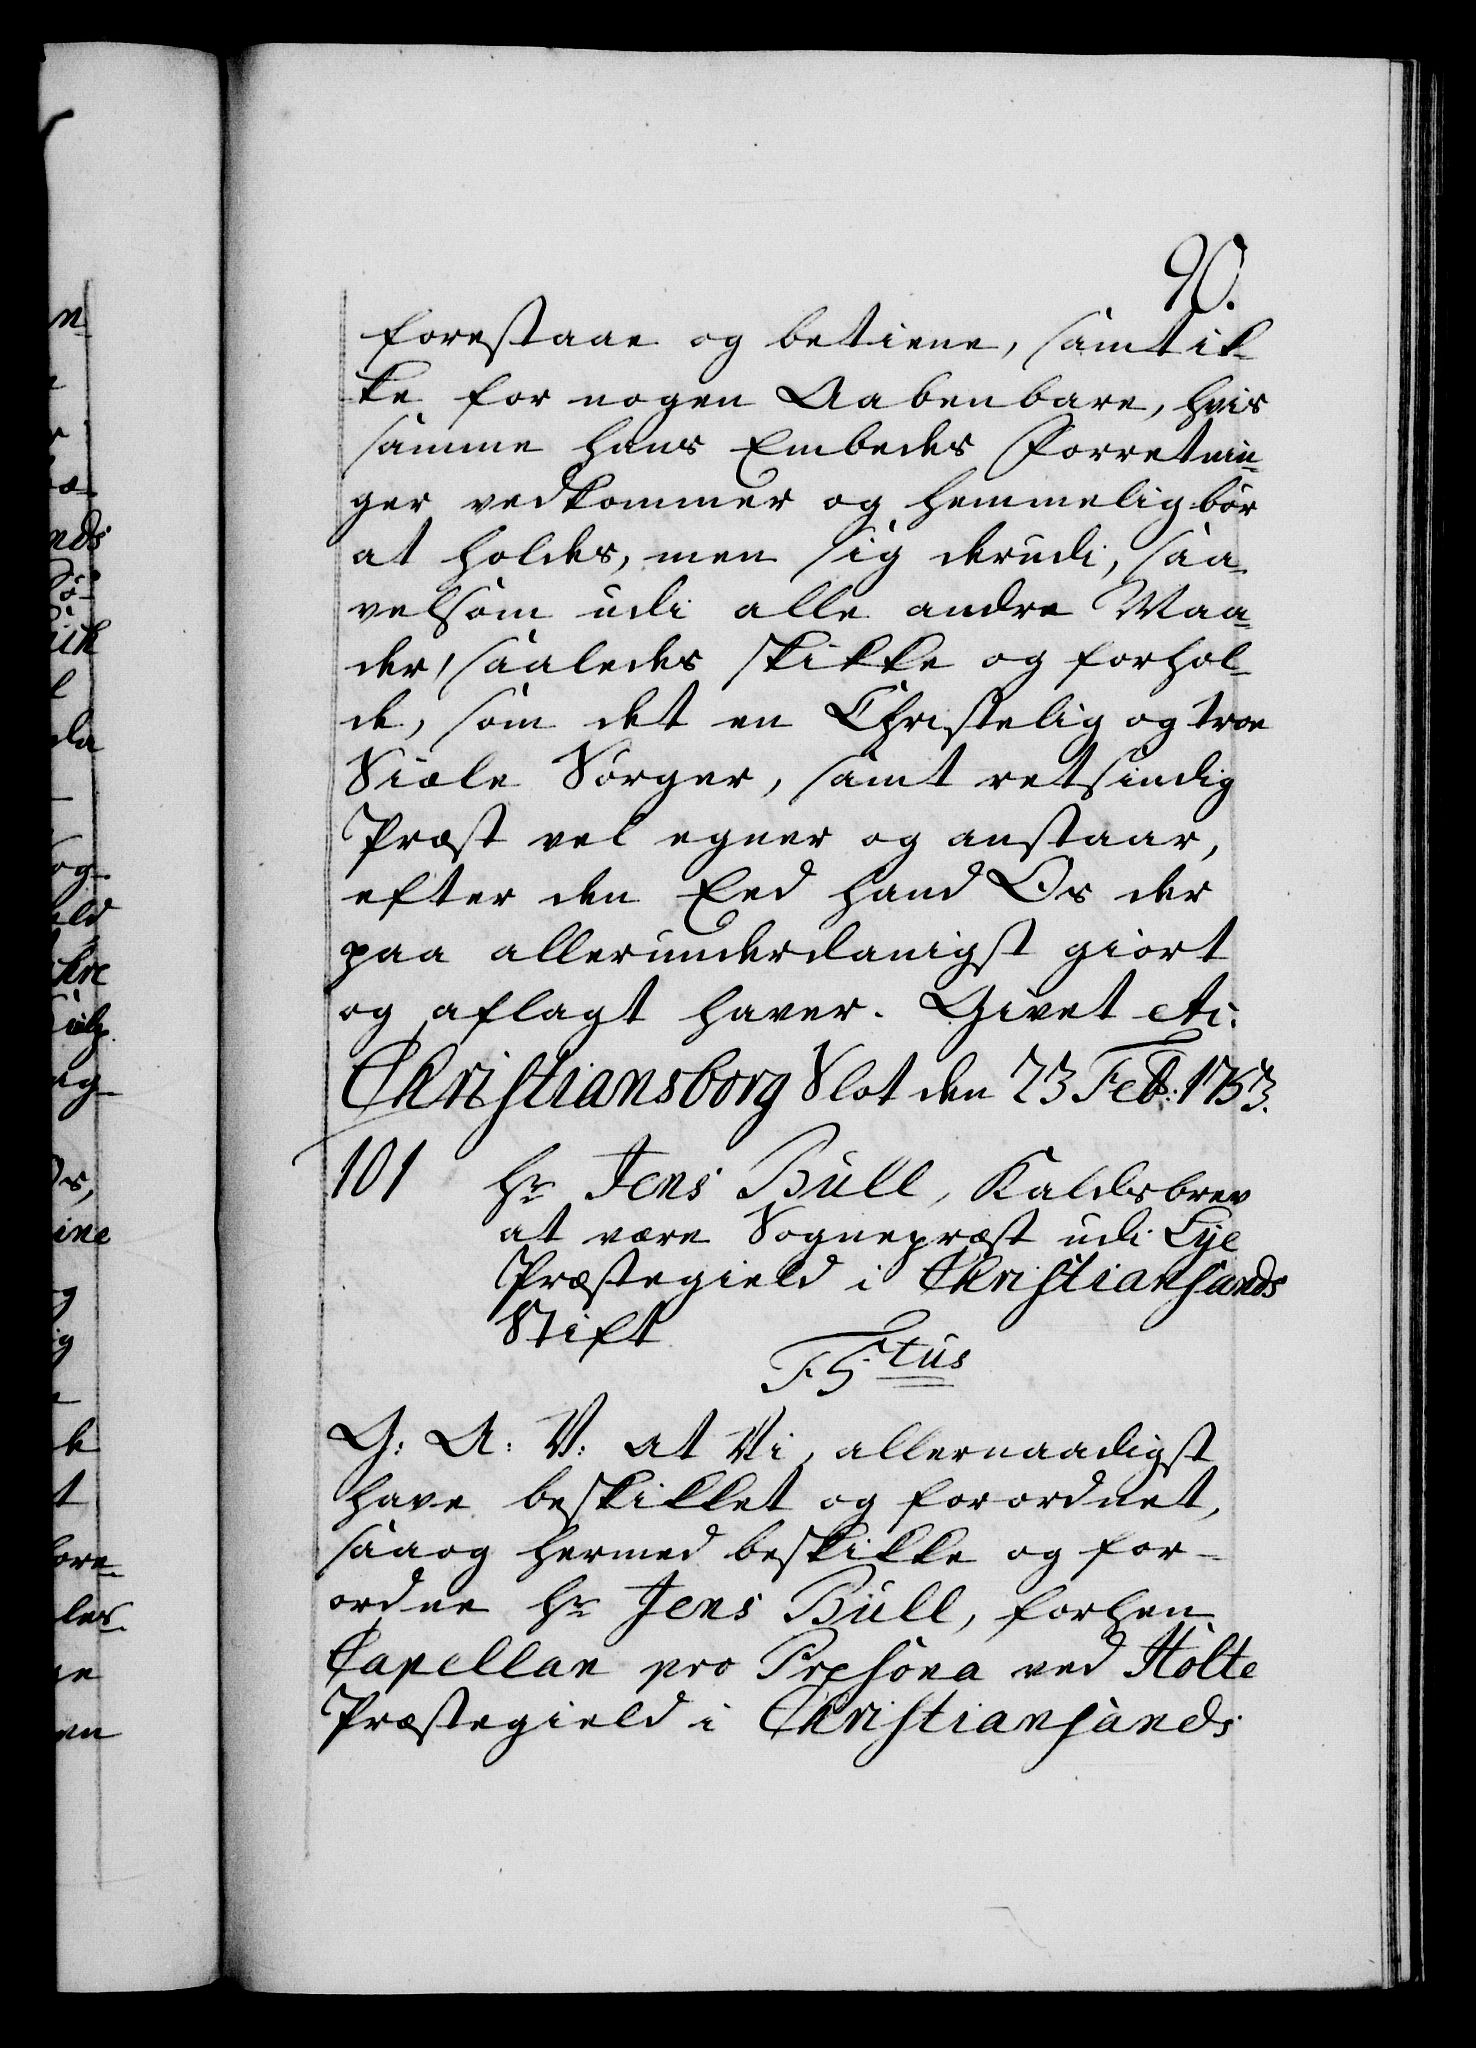 90.
forestaae og betiene, samt ik-
ke for nogen Aabenbare, hvis
samme hans Embedes Forretnin-
ger vedkommer og hemmelig bör
at holdes, men sig derudi, saa-
velsom udi alle andre Maa-
der, saaledes skikke og forhol-
de, som det en Christelig og troe
Siæle Sörger, samt retsindig
Præst vel egner og anstaar,
efter den Eed hand Os der
paa allerunderdanigst giort
og aflagt haver. Givet etc.
Christiansborg Slot den 23 Feb: 1753.
101 Hr Jens Bull, Kaldsbrev
at være Sognepræst udi Lye
Præstegield i Christiansands
Stift
F5tus
G: A: V: at Vi allernaadigst
have beskikket og forordnet,
saa og hermed beskikke og for-
ordne Hr Jens Bull, forhen
Capellan pro Persona ved Holte
Præstegield i Christiansands